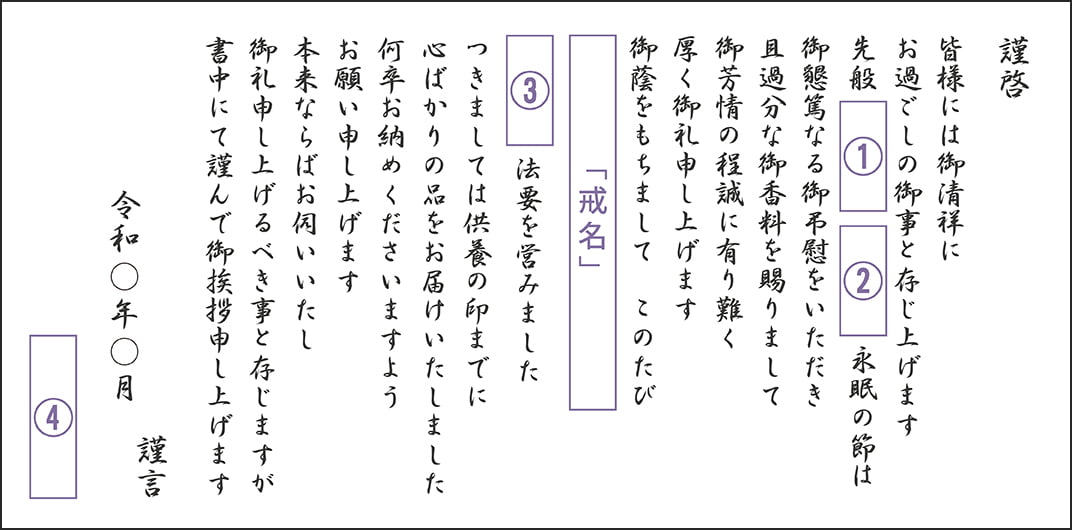 謹啓
皆様には御清祥に
お過ごしの御事と存じ上げます
先般 ① ② 永眠の節は
御懇篤なる御弔慰をいただき
且過分な御香料を賜りまして
御芳情の程誠に有り難く
厚く御礼申し上げます
御蔭をもちまして このたび
「戒名」
③ 法要を営みました
つきましては供養の印までに
心ばかりの品をお届けいたしました
何卒お納めくださいますよう
お願い申し上げます
本来ならばお伺いいたし
御礼申し上げるべき事と存じますが
書中にて謹んで御挨拶申し上げます
謹言
令和〇年〇月
④